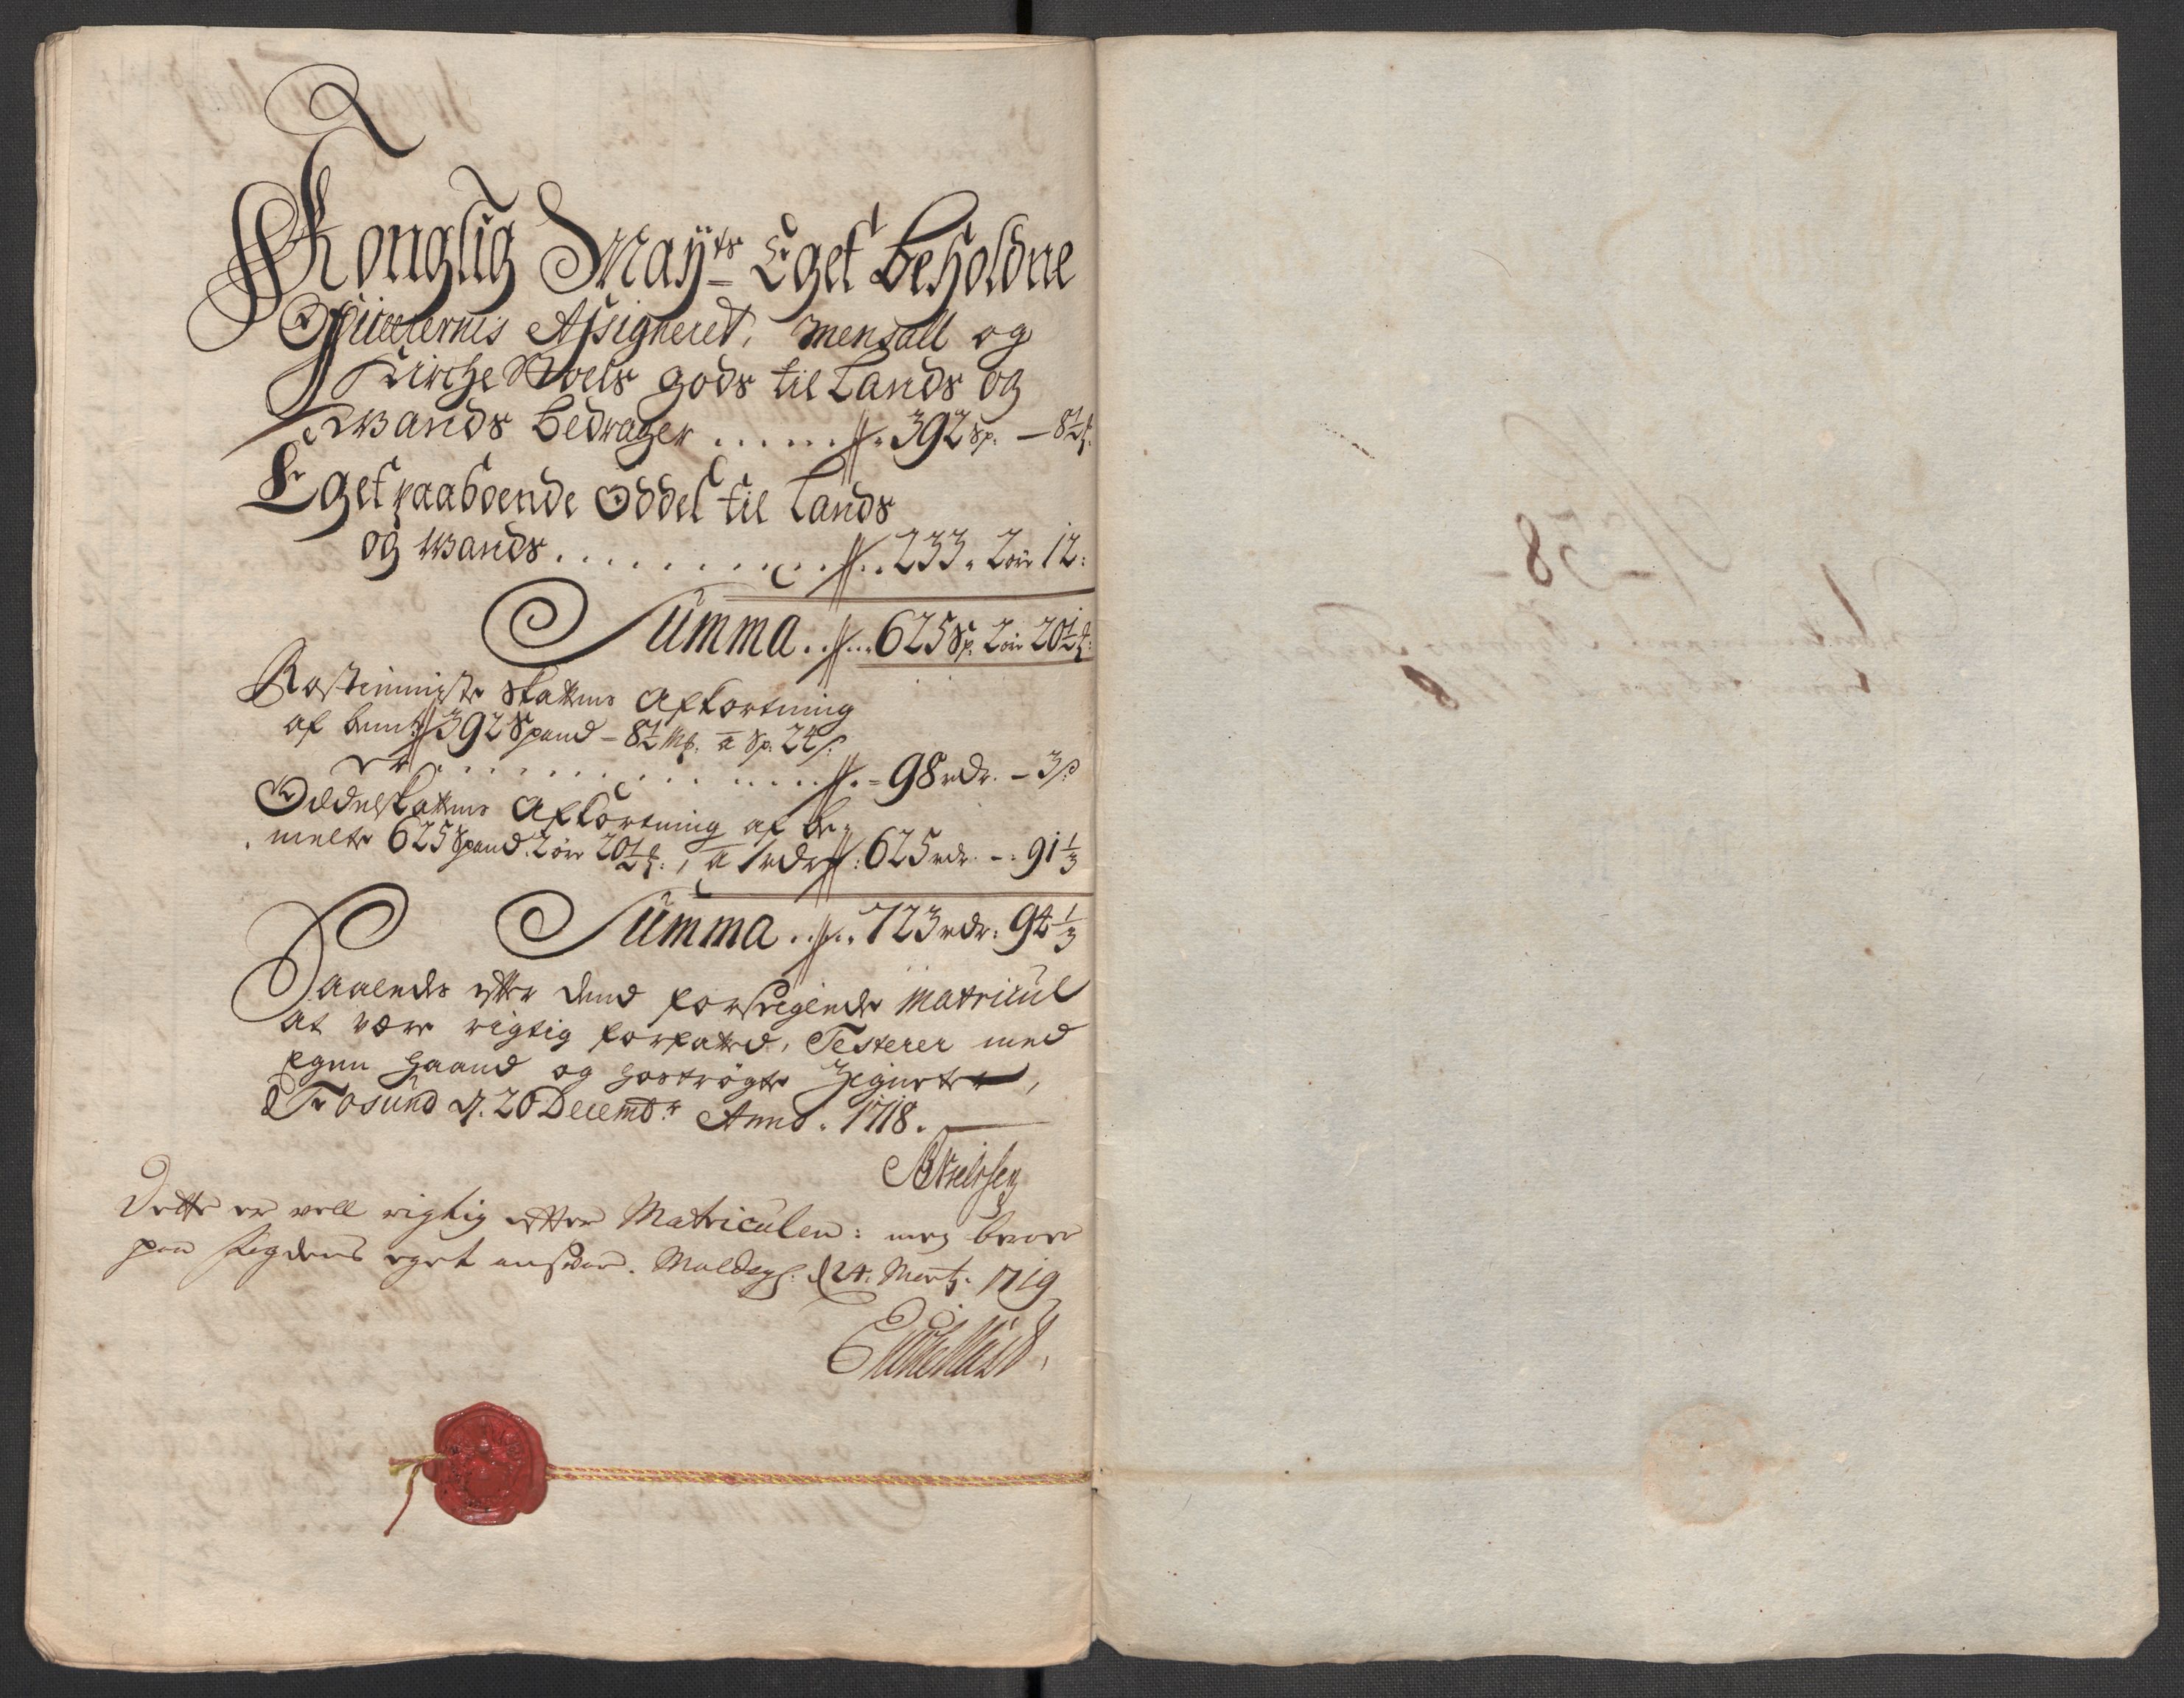 Konglig Mayts Eget Beholdne
Officerernis Assigneret, Mensall og
Kirche Boels gods til Lands og
Wands bedrager ...... 392 Sp. – 8½
Eget paaboende Oddel til Lands
og Wands ........... 233 „ 2 ører 12:
Summa ..... 625 Sp. 2 ører 20½
Rostieniniste Skattens Afkortning
af bemte 392 Spand – 8½ Mk. a Sp. 24 s.
er ........... 98 rdr. – 3 s
Oddelskattens Afkortning af be-
melte 625 Spand 2 øre 20½, a 1 rdr : 625 rdr. – : 91⅓
Summa .... 723 rdr: 94⅓
Saaledes efter dend forseglende Matricul
at være rigtig forfatted, Testerer med
Egen Haand og hostrøgte Zignete,
Fosund d. 20 Decembr Anno. 1718.
Nielssen
Dette er vell rigtig efter Matriculen: men beroer
paa fogdens eget ansvar. Moldegr. d 24. Mertz. 1719
No 58